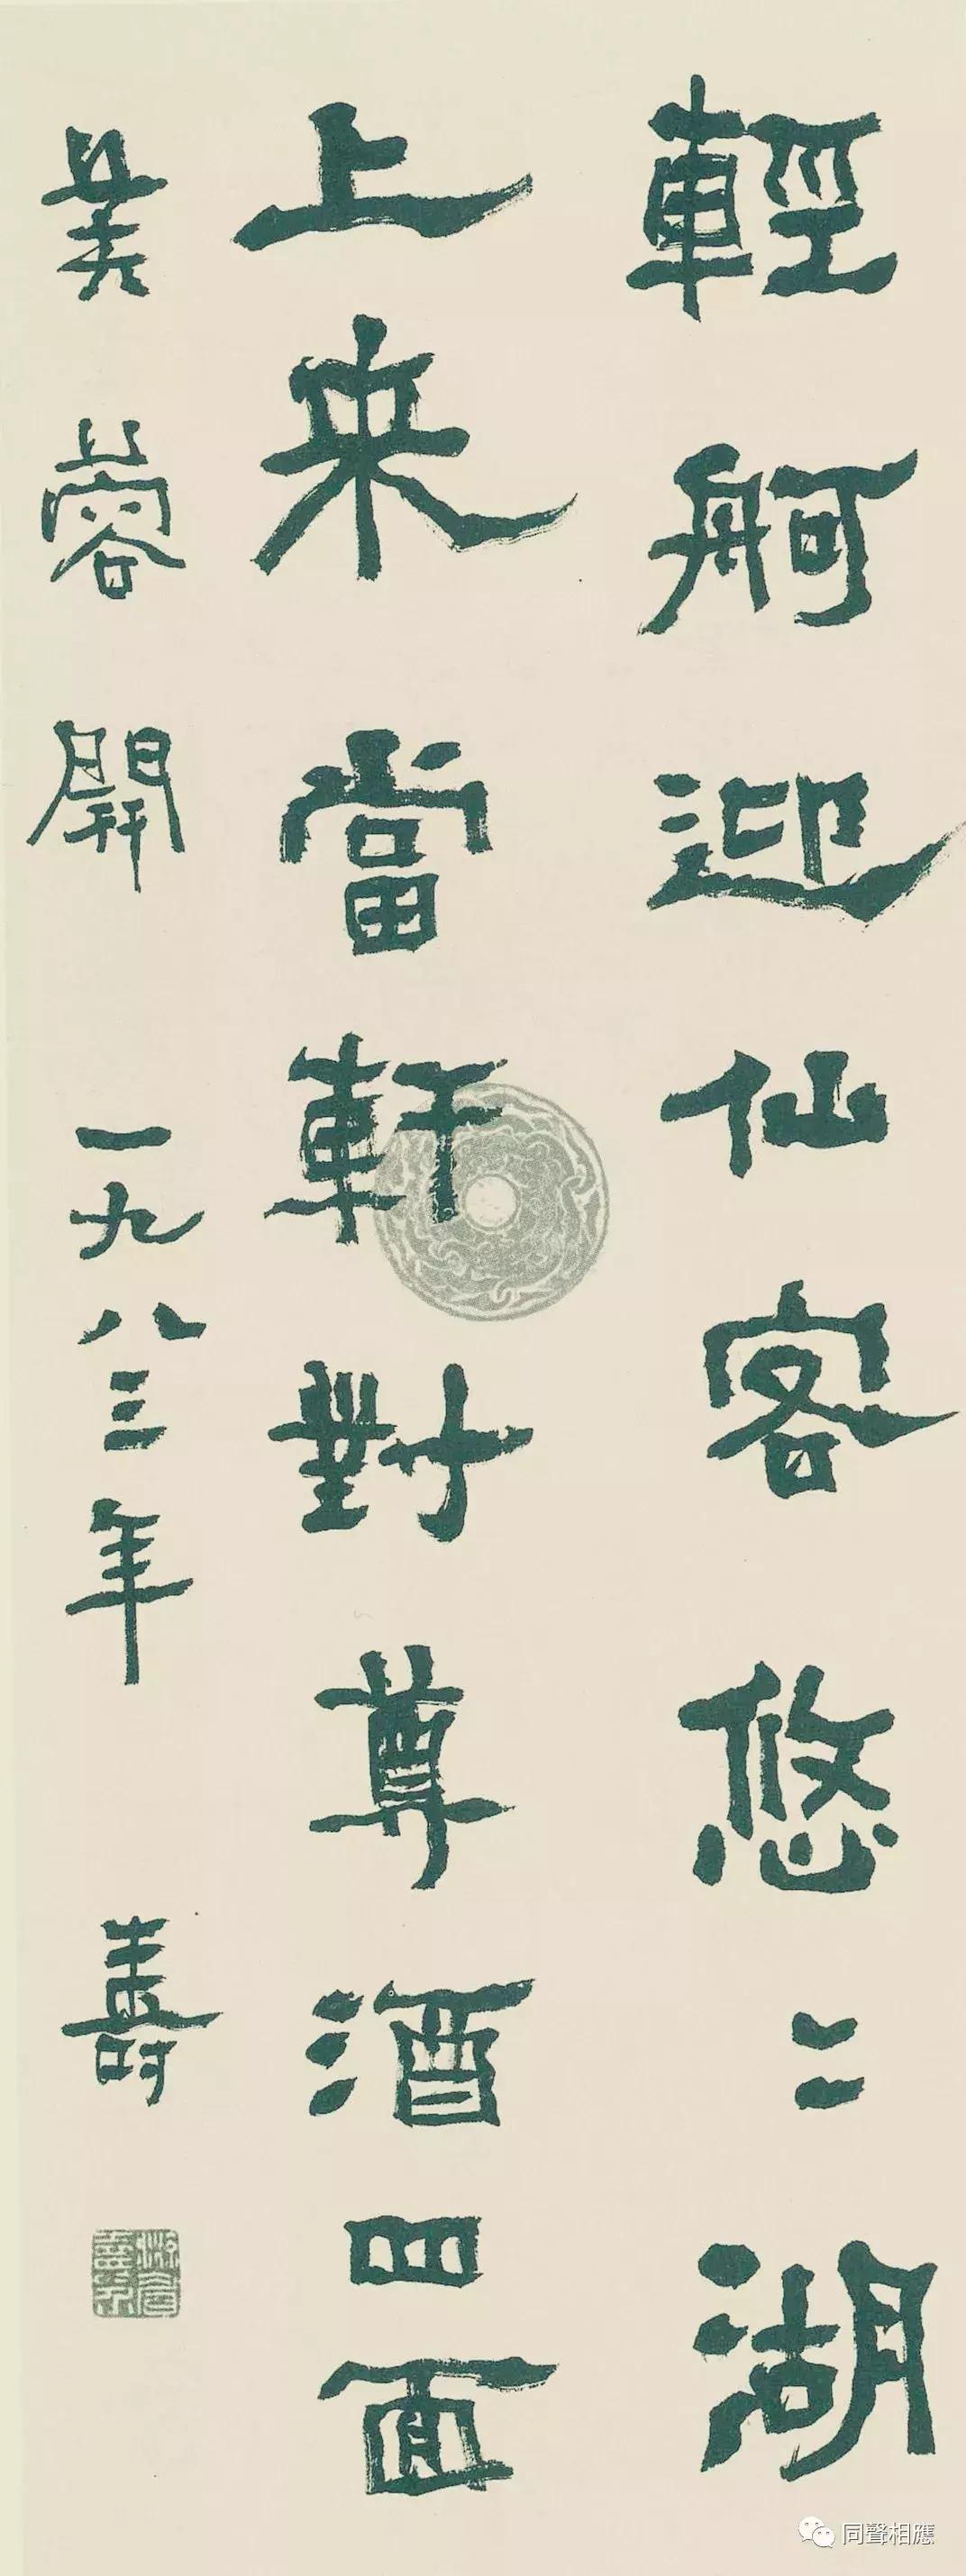 輕舸迎仙客悠〻湖
上来當軒對尊酒四面
芙蓉開 一九八三年 壽
同聲相應